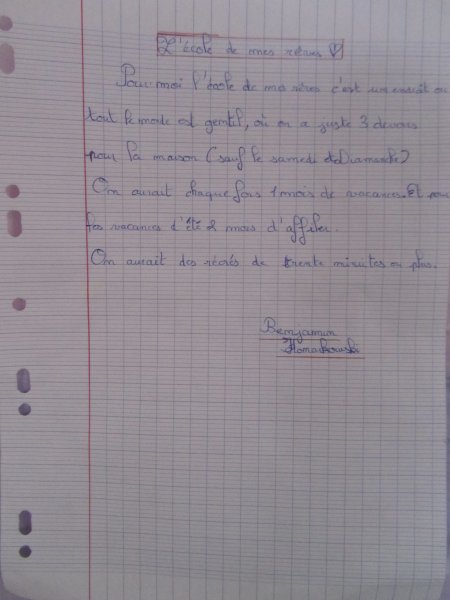 L'école de mes rêves ♡
Pour moi l'école de mes rêves c'est un endroit ou
tout le monde est gentil, où on a juste 3 devoirs
pour la maison (sauf le samedi et Dimanche)
On aurait chaque fois 1 mois de vacances. Et pour
les vacances d'été 2 mois d'affiler.
On aurait des récrés de trente minutes ou plus.
Benjamin